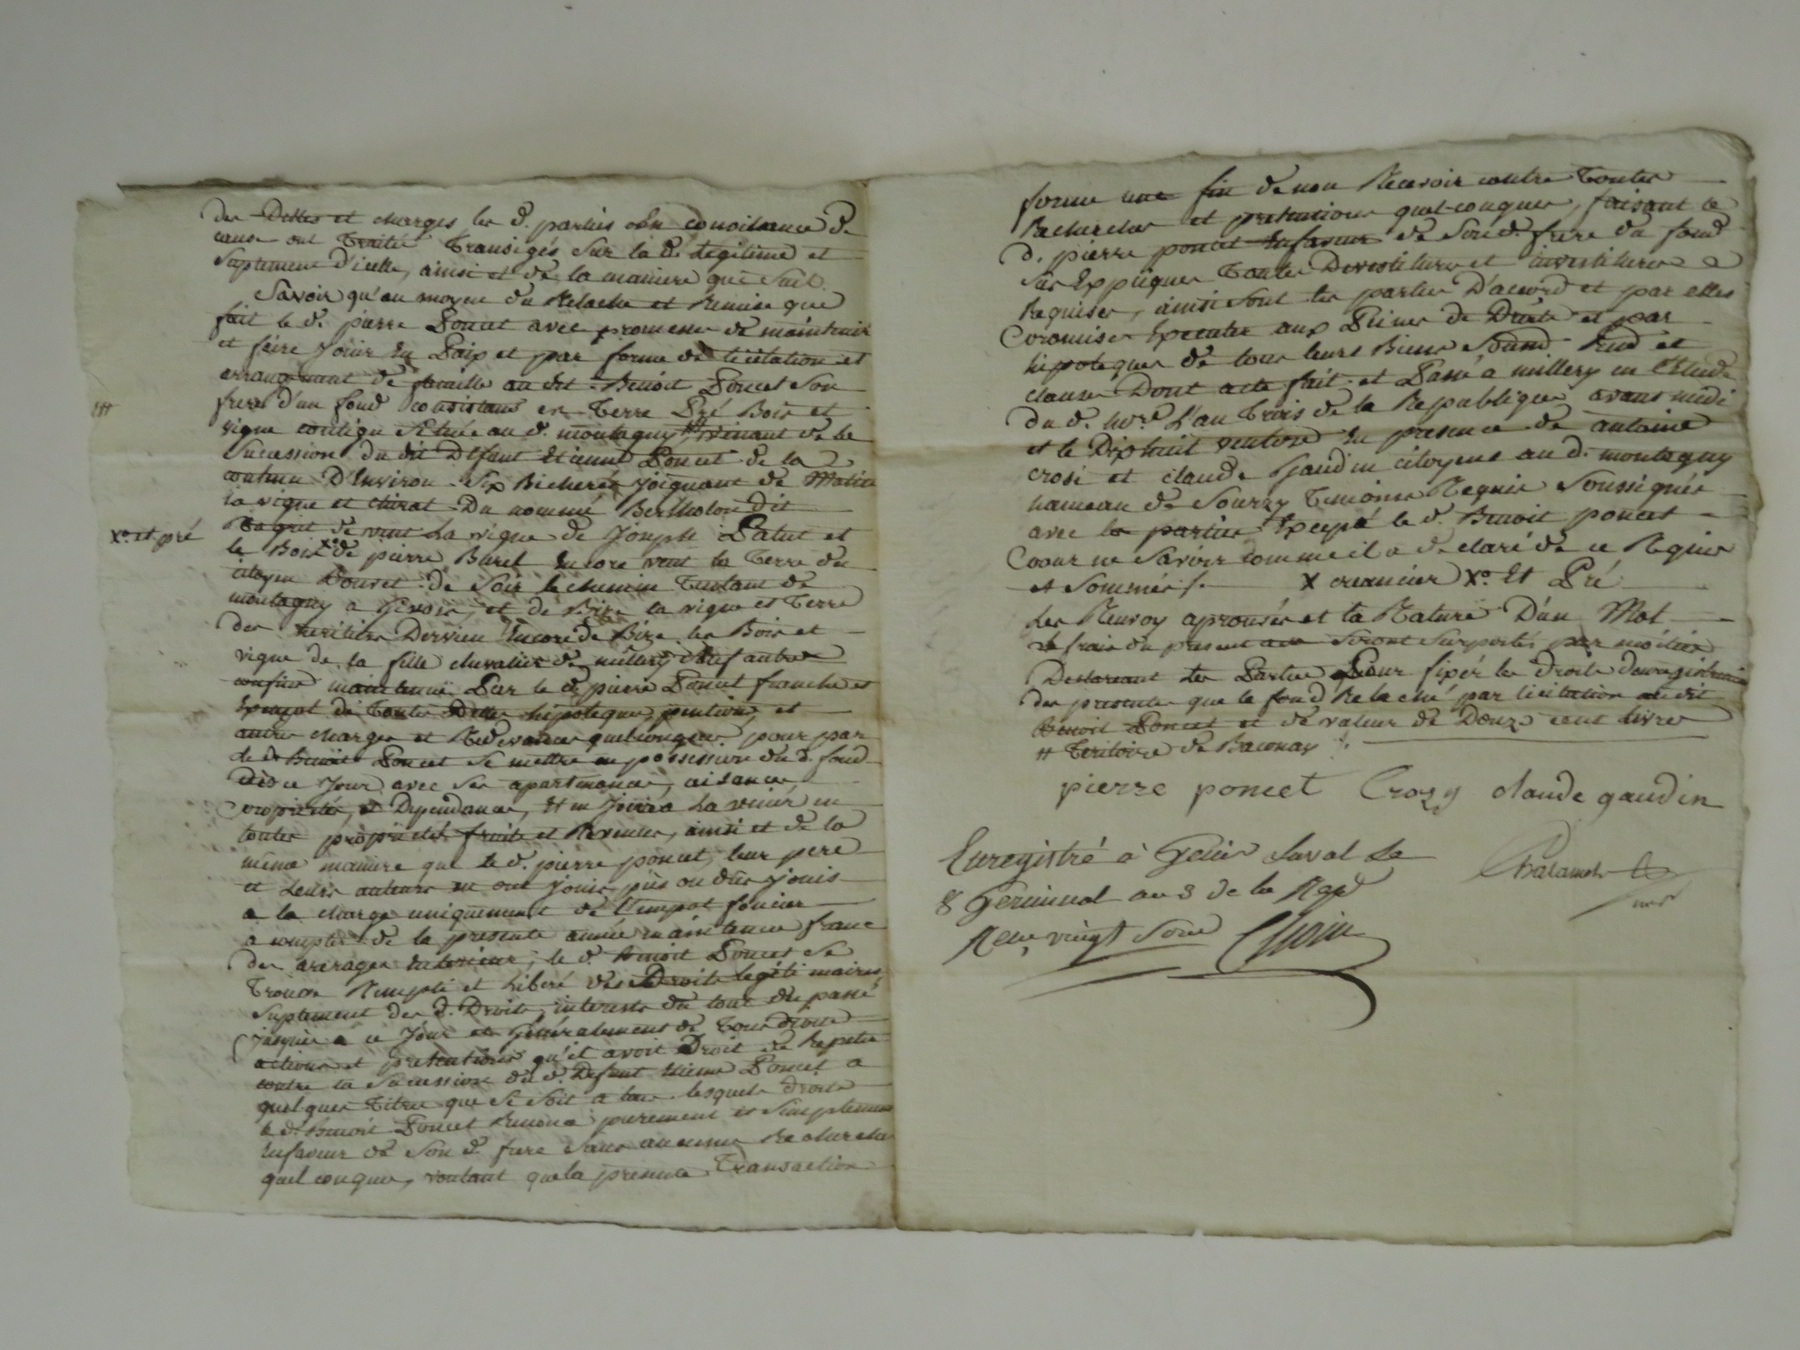 des Dettes et charges les d. parties ohn conoissance de
cause ont Traité Transigés sur la d. Legitime et
Suplement d'icelle, ainsi et de la maniere que suit.
Savoir qu'au moyen du Relache et Remise que
fait le d. pierre Poncet avec promesse de maintenir
et faire jouir En Paix et par forme de licitation et
arrangement de famille au dit Benoit Poncet Son
frere d'un fond consistant en Terre Pré Bois et
vigne contigu Située au d. montagny # venant de la
Sucession du dit Defunt Etienne Poncet de la
contenu D'Environ Six Bicherée joignant de Matin
la vigne et Du nommé Bertholon dit
de vent La vigne de Joseph Patut et
X° et pré
le Bois X° de pierre Buret Encore vent la Terre du
citoyen Douret de Soir le chemin Tendant de
montagny a et de Bize la vigne et Terre
des heritiers Dervieu Encore de Bize les Bois et
vigne de la fille chevalier de millery Sauf autres
confins maintenu Par le d. pierre Poncet franche et
Exempt de Toutes Dettes hipoteques, pentions, et
autres charges et Redevances quelconques pour par
le d. Benoit Poncet Se mettre en possession du d. fond
dès ce Jour avec Ses apartenances, aisances
Coproprietés, et Dependances, Et en Jouira La venir en
toutes proprietés fruits et Revenus, ainsi et de la
meme maniere que le d. pierre poncet, leur pere
et leurs auteurs en ont jouis, pùs ou dus jouis
a la charge uniquement de l'impot foncier
a compter de la presente année maintenu franc
des arerages anterieurs, le d. Benoit Poncet Se
Trouve Rempli et Libéré des Droits legitimaires,
Suplement des d. Droits, interets du tout du passé
jusques a ce Jour et Generalement de Tous droits
actions et pretentions qu'il avoit Droit de Repeter
contre la Sucession du d. Defunt Etienne Poncet a
quelques Titres que ce Soit a tous lesquels droits
le d. Benoit Poncet Renonce purement et Simplement
En faveur de Son d. frere Sans aucunes Recherches
quelconques, voulant que la presente Transaction
forme une fin de non Recevoir contre Toutes
Recherches et pretentions quelconques, faisant le
d. pierre poncet En faveur de Son d. frere du fond
Sus Expliques Toutes Devestitures et investitures
Requises, ainsi Sont les parties D'acord et par elles
Coromises Executer aux Peines de Droits et par
hipoteques de tous leurs Biens Soumis Rend et
clauses Dont acte fait et Passé a millery en l'Etude
du d. no.re L'an Trois de la Republique avant midi
et le Dixhuit ventose En presence de antoine
crosi et claude Gaudin citoyens au d. montagny
hameau de Sourzy Temoins Requis Soussignés
avec les parties Excepté le d. Benoit poncet
Pour ne Savoir comme il a declaré de ce Requis
et Sommés /. X creancier X° Et Pré
Les Renvoy aprouvés et la Rature D'un Mot
Les frais du present acte Seront Suportés par moitier
Declarant les Parties Pour fixer les droits d'enregistrement
des presentes que le fond Relaché par licitation au dit
Benoit Poncet et de valeur de Douze cent livres
# Teritoire de Baconay /.
pierre poncet Crozy claude gaudin
Enregistré à Genis Laval Le
8 Germinal an 3 de la Rep.
Reçu vingt Sous